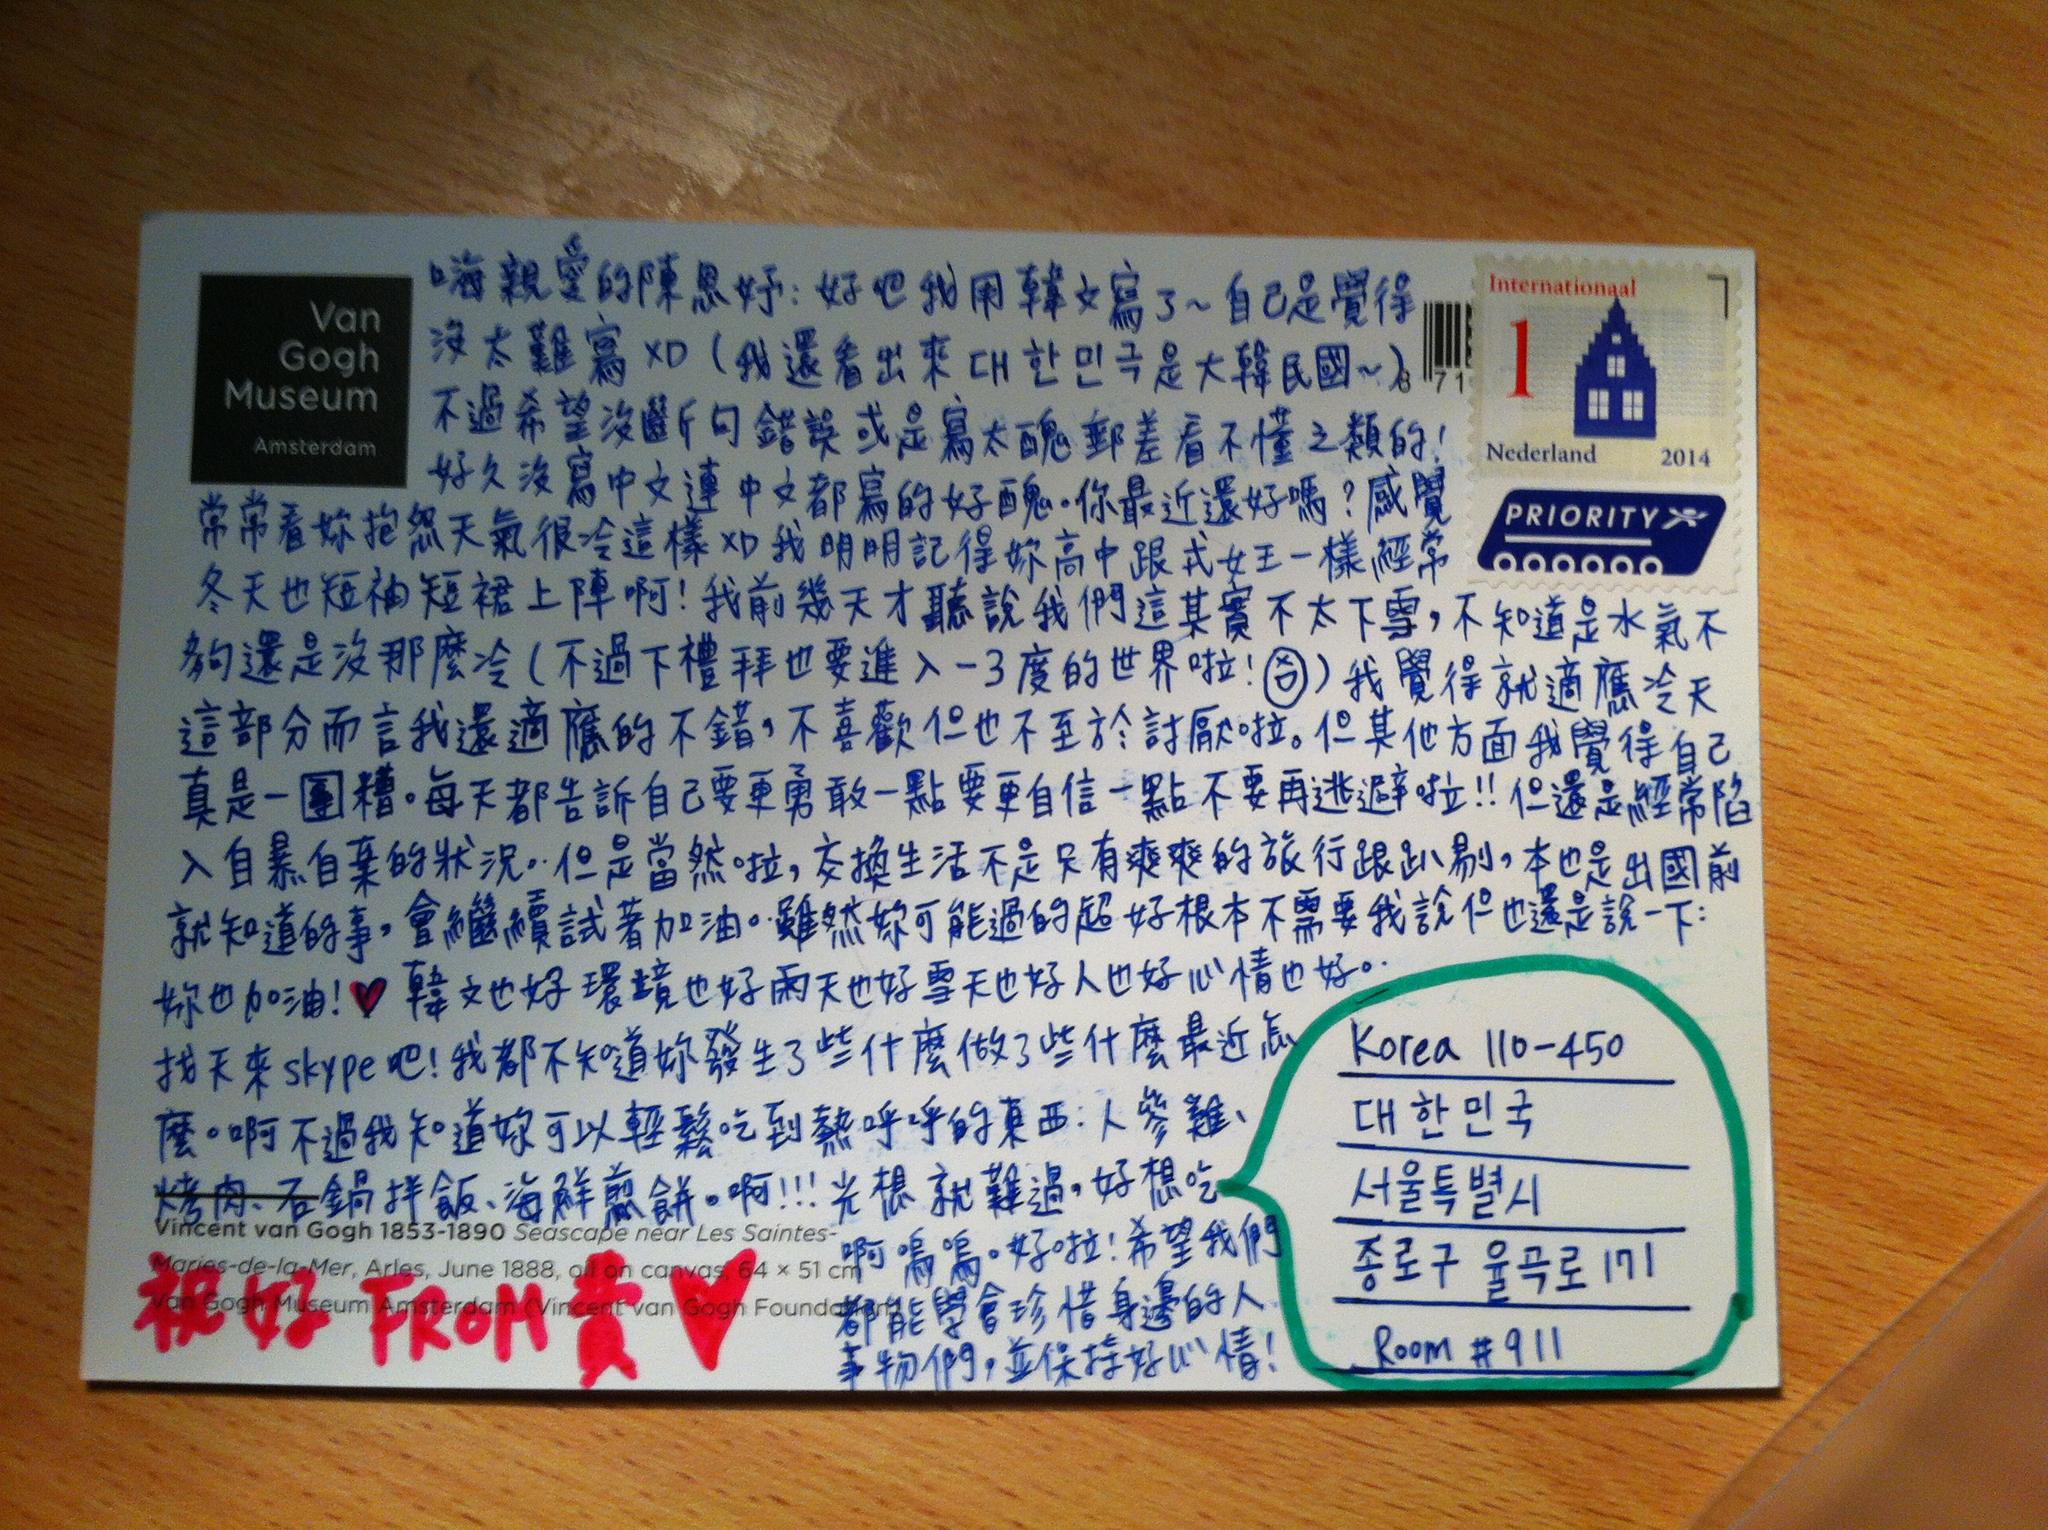 Van
Gogh
Museum
Amsterdam
嗨親愛的陳恩妤:好吧我用韓文寫了~自己是覺得
沒太難寫XD(我還看出來대한민국是大韓民國~)
不過希望沒斷句錯誤或是寫太醜郵差看不懂之類的!
好久沒寫中文連中文都寫的好醜。你最近還好嗎?感覺
常常看妳抱怨天氣很冷這樣XD我明明記得妳高中跟弍女王一樣經常
冬天也短袖短裙上陣啊!我前幾天才聽說我們這其實不太下雪,不知道是水氣不
夠還是沒那麼冷(不過下禮拜也要進入-3度的世界啦!)我覺得就適應冷天
這部分而言我還適應的不錯,不喜歡但也不至於討厭啦。但其他方面我覺得自己
真是一團糟。每天都告訴自己要更勇敢一點要更自信一點不要再逃避啦!!但還是經常陷
入自暴自棄的狀況。但是當然啦,交換生活不是只有爽爽的旅行跟趴剔,本也是出國前
就知道的事。會繼續試著加油。雖然妳可能過的超好根本不需要我說但也還是說一下:
妳也加油!♥韓文也好環境也好雨天也好雪天也好人也好心情也好。
找天來skype吧!我都不知道妳發生了些什麼做了些什麼最近怎
麼。啊不過我知道妳可以輕鬆吃到熱呼呼的東西:人參雞、
烤肉、石鍋拌飯、海鮮煎餅。啊!!!光想就難過,好想吃
啊嗚嗚。好啦!希望我們
都能學會珍惜身邊的人
事物們,並保持好心情!
Vincent van Gogh 1853-1890 Seascape near Les Saintes-
Maries-de-la-Mer, Arles, June 1888, oil on canvas, 64 × 51 cm
Van Gogh Museum Amsterdam (Vincent van Gogh Foundation)
祝好 FROM 貴♥
8 71
Internationaal
1
Nederland 2014
PRIORITY
Korea 110-450
대한민국
서울특별시
종로구 율곡로 171
Room #911